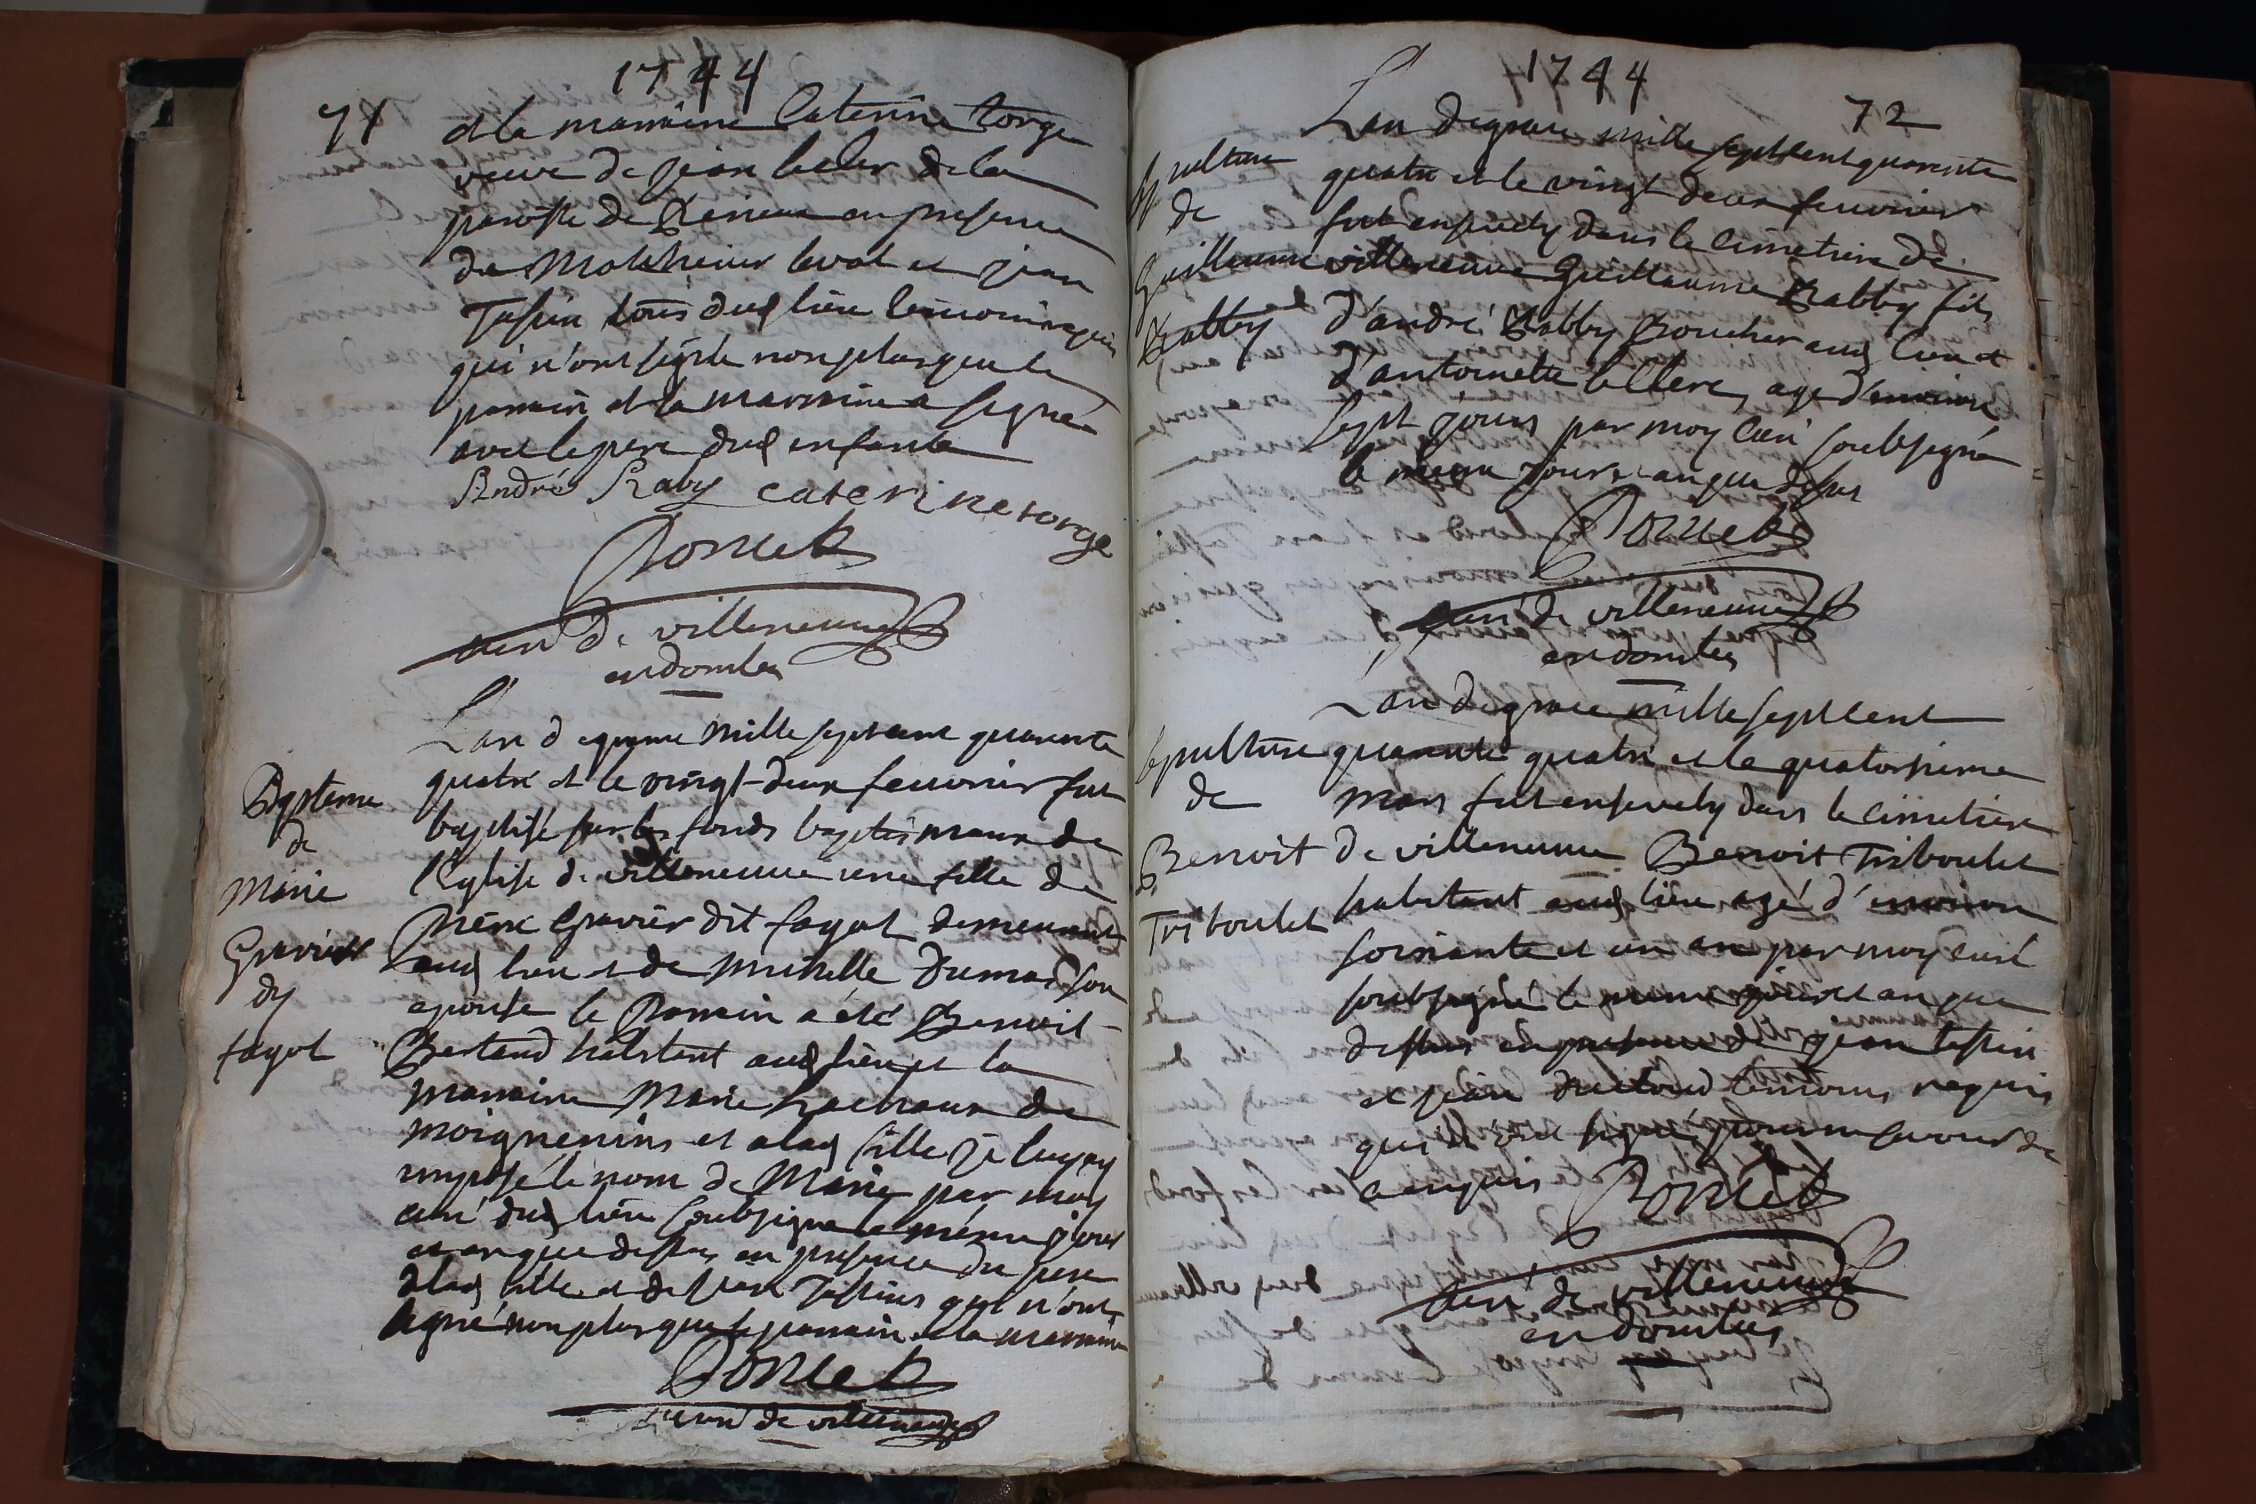 1744
71
et la marraine Caterine torge
veuve de jean lecler de la
paroisse de Rerieux en presence
de Mathieur laval et jean
Tissin tous dud lieu temoins requis
qui n'ont signé non plus que le
parrain et la marraine a signé
avec le pere dud enfant
André Raby Caterine torge
Poncet
curé de villeneuve
en dombes
L'an de grace mille sept cent quarente
quatre et le vingt-deux feuvrier fut
baptisé sur les fonds baptismaux de
l'Eglise de villeneuve une fille de
Pierre Gravier dit fagot demeurant
aud lieu et de Michelle Dumas son
epouse le Parrain a été Benoit
Bertand habitant aud lieu et la
marraine Marie de
moignenins et a lad fille je luy ay
imposé le nom de Marie par moy
curé dud lieu soubsigné le méme jour
et an que dessus en presence du pere
de lad fille et de jean Tissin qui n'ont
signé non plus que le parrain et la marraine
Poncet
curé de villeneuve
Baptéme
de
Marie
Gravier
dit
fagot
1744
72
L'an de grace mille sept cent quarente
quatre et le vingt deux feuvrier
fut ensevely dans le cimetiere de
villeneuve Guillaume Rabby fils
d'andré Rabby Boucher aud lieu et
d'antoinette lecllerc, agé d'environ
sept jours par moy curé soubsigné
le meme jour et an que dessus
Poncet
curé de villeneuve
en dombes
Sepulture
de
Guillaume
Rabby
L'an de grace mille sept cent
quarente quatre et le quatorsieme
mars fut ensevely dans le cimetiere
de villeneuve Benoit Triboulet
habitant aud lieu agé d'environ
soixante et un an par moy curé
soubsigné le meme jour et an que
dessus en presence de jean tissin
et jean ducloud temoins requis
qui n'ont signé pour ne sçavoir de
ce enquis Poncet
curé de villeneuve
en dombes
Sepulture
de
Benoit
Triboulet